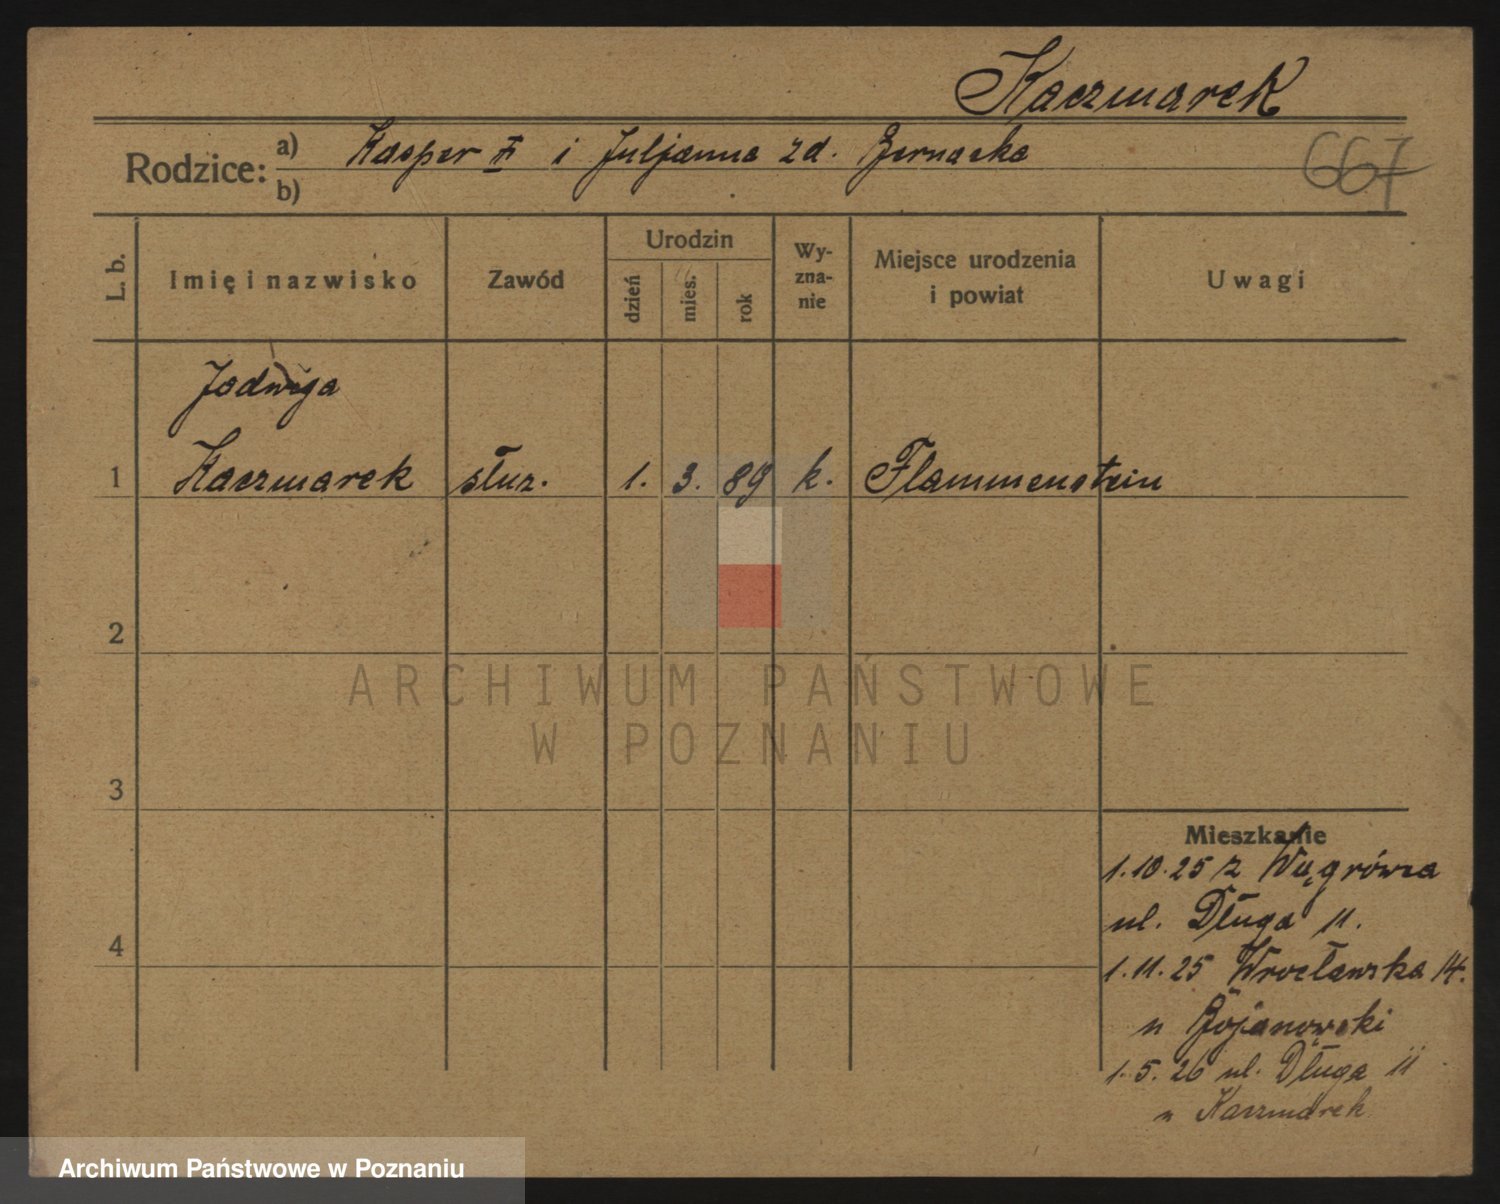 Kaczmarek
Rodzice: a) Kasper i Juljanna zd.
b)
667
L. b.
Imię i nazwisko
Zawód
Urodzin
dzień
mies.
rok
Wy-
zna-
nie
Miejsce urodzenia
i powiat
Uwagi
Jadwiga
1 Kaczmarek służ. 1. 3. 89 k. Flammenstein
2
ARCHIWUM PAŃSTWOWE
W POZNANIU
3
Mieszkanie
1.10.25 z Wągrówca
ul. Długa 11.
4
1.11.25 Wrocławska 14.
u Bojanowski
1.5.26 ul. Długa 11
u Kaczmarek
Archiwum Państwowe w Poznaniu